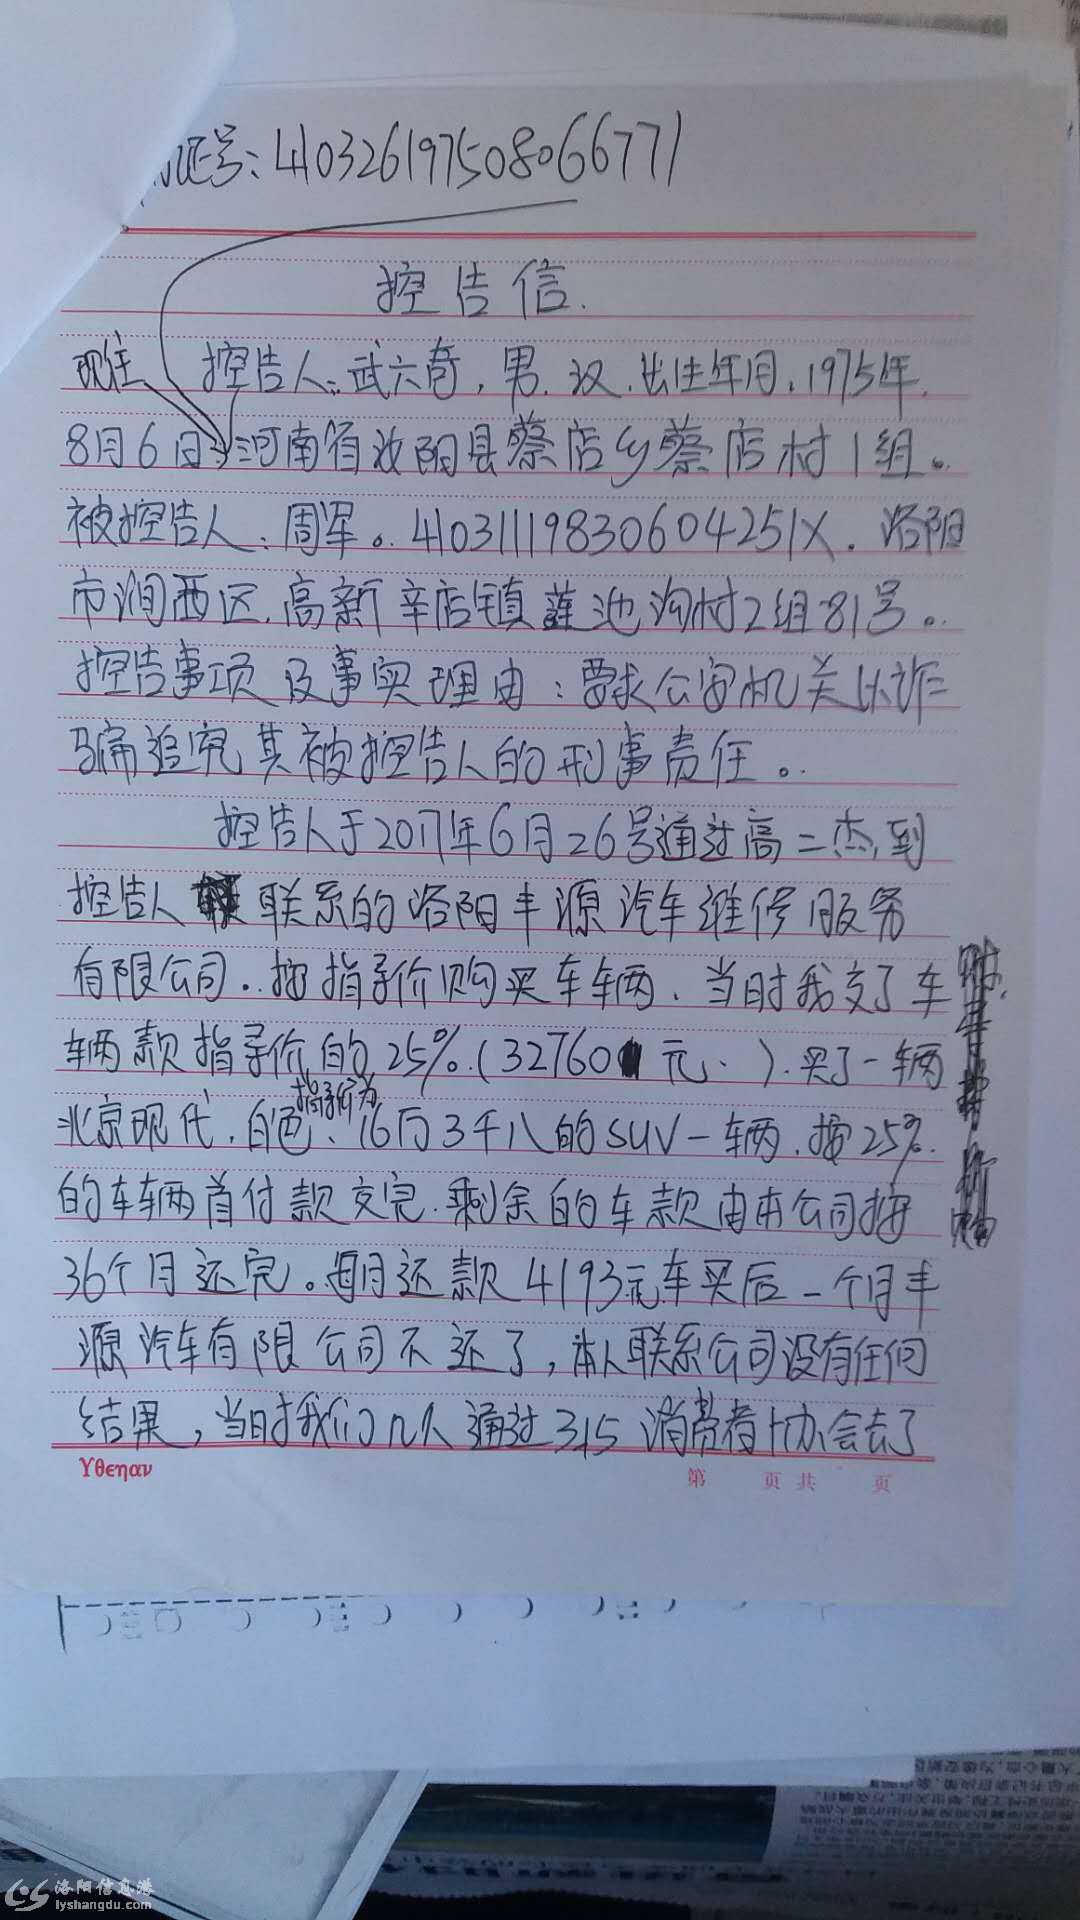 证号:410326197508066771
控告信.
现住 控告人:武六奇,男.汉.出生年月.1975年.
8月6日 河南省汝阳县蔡店乡蔡店村1组。
被控告人:周军。41031119830604251X.洛阳
市涧西区.高新辛店镇莲池沟村2组81号。
控告事项及事实理由:要求公安机关以诈
骗追究其被控告人的刑事责任。
控告人于2017年6月26号通过高二杰,到
控告人 联系的洛阳丰源汽车维修服务
有限公司.按指导价购买车辆.当时我交了车
辆款指导价的25%.(32760元.).买了一辆
指导价为
北京现代.白色、16万3千八的SUV一辆.按25%.
的车辆首付款交完.剩余的车款由本公司按
36个月还完。每月还款4193元,车买后一个月丰
源汽车有限公司不还了,本人联系公司没有任何
结果,当时我们几人通过315消费者协会去了
Yθεηαν
第 页 共 页
洛阳信息港
lyshangdu.com